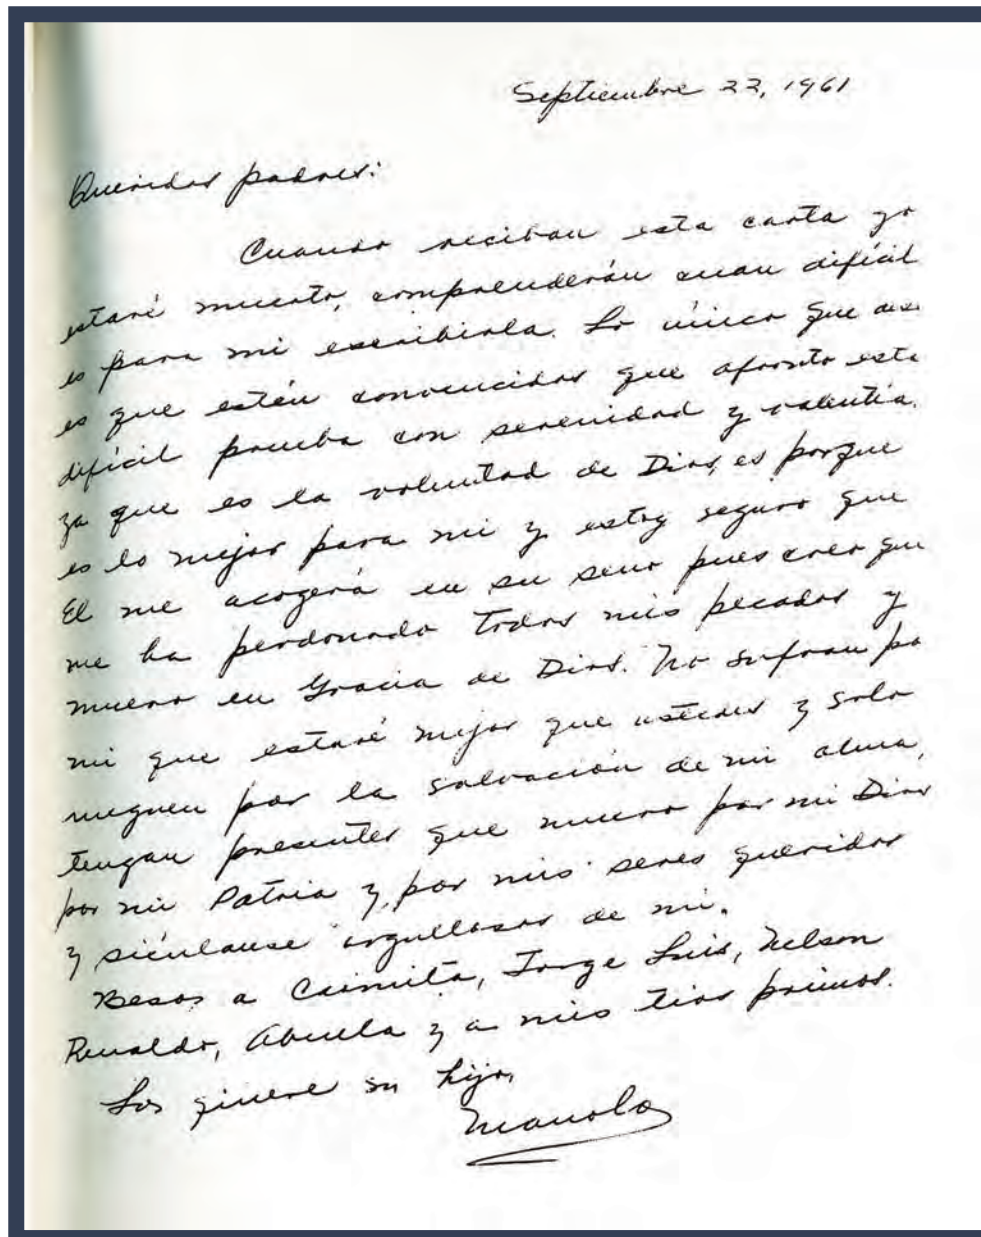 Septiembre 22, 1961
Queridos padres:
Cuando reciban esta carta yo
estaré muerto, comprenderán cuan difícil
es para mi escribirla. Lo único que
es que estén convencidos que afronto esta
difícil prueba con serenidad y valentía.
ya que es la voluntad de Dios, es porque
es lo mejor para mi y estoy seguro que
El me acogerá en su seno pues creo que
me ha perdonado todos mis pecados y
muero en Gracia de Dios. No sufran po
mi que estaré mejor que ustedes y solo
rueguen por la salvación de mi alma,
tengan presentes que muero por mi Dios
por mi Patria y por mis seres queridos
y siéntanse orgullosos de mi.
Besos a Jorge Luis, Nelson
Renaldo, Abuela y a mis tios primos.
Los quiere su hijo,
Manolo